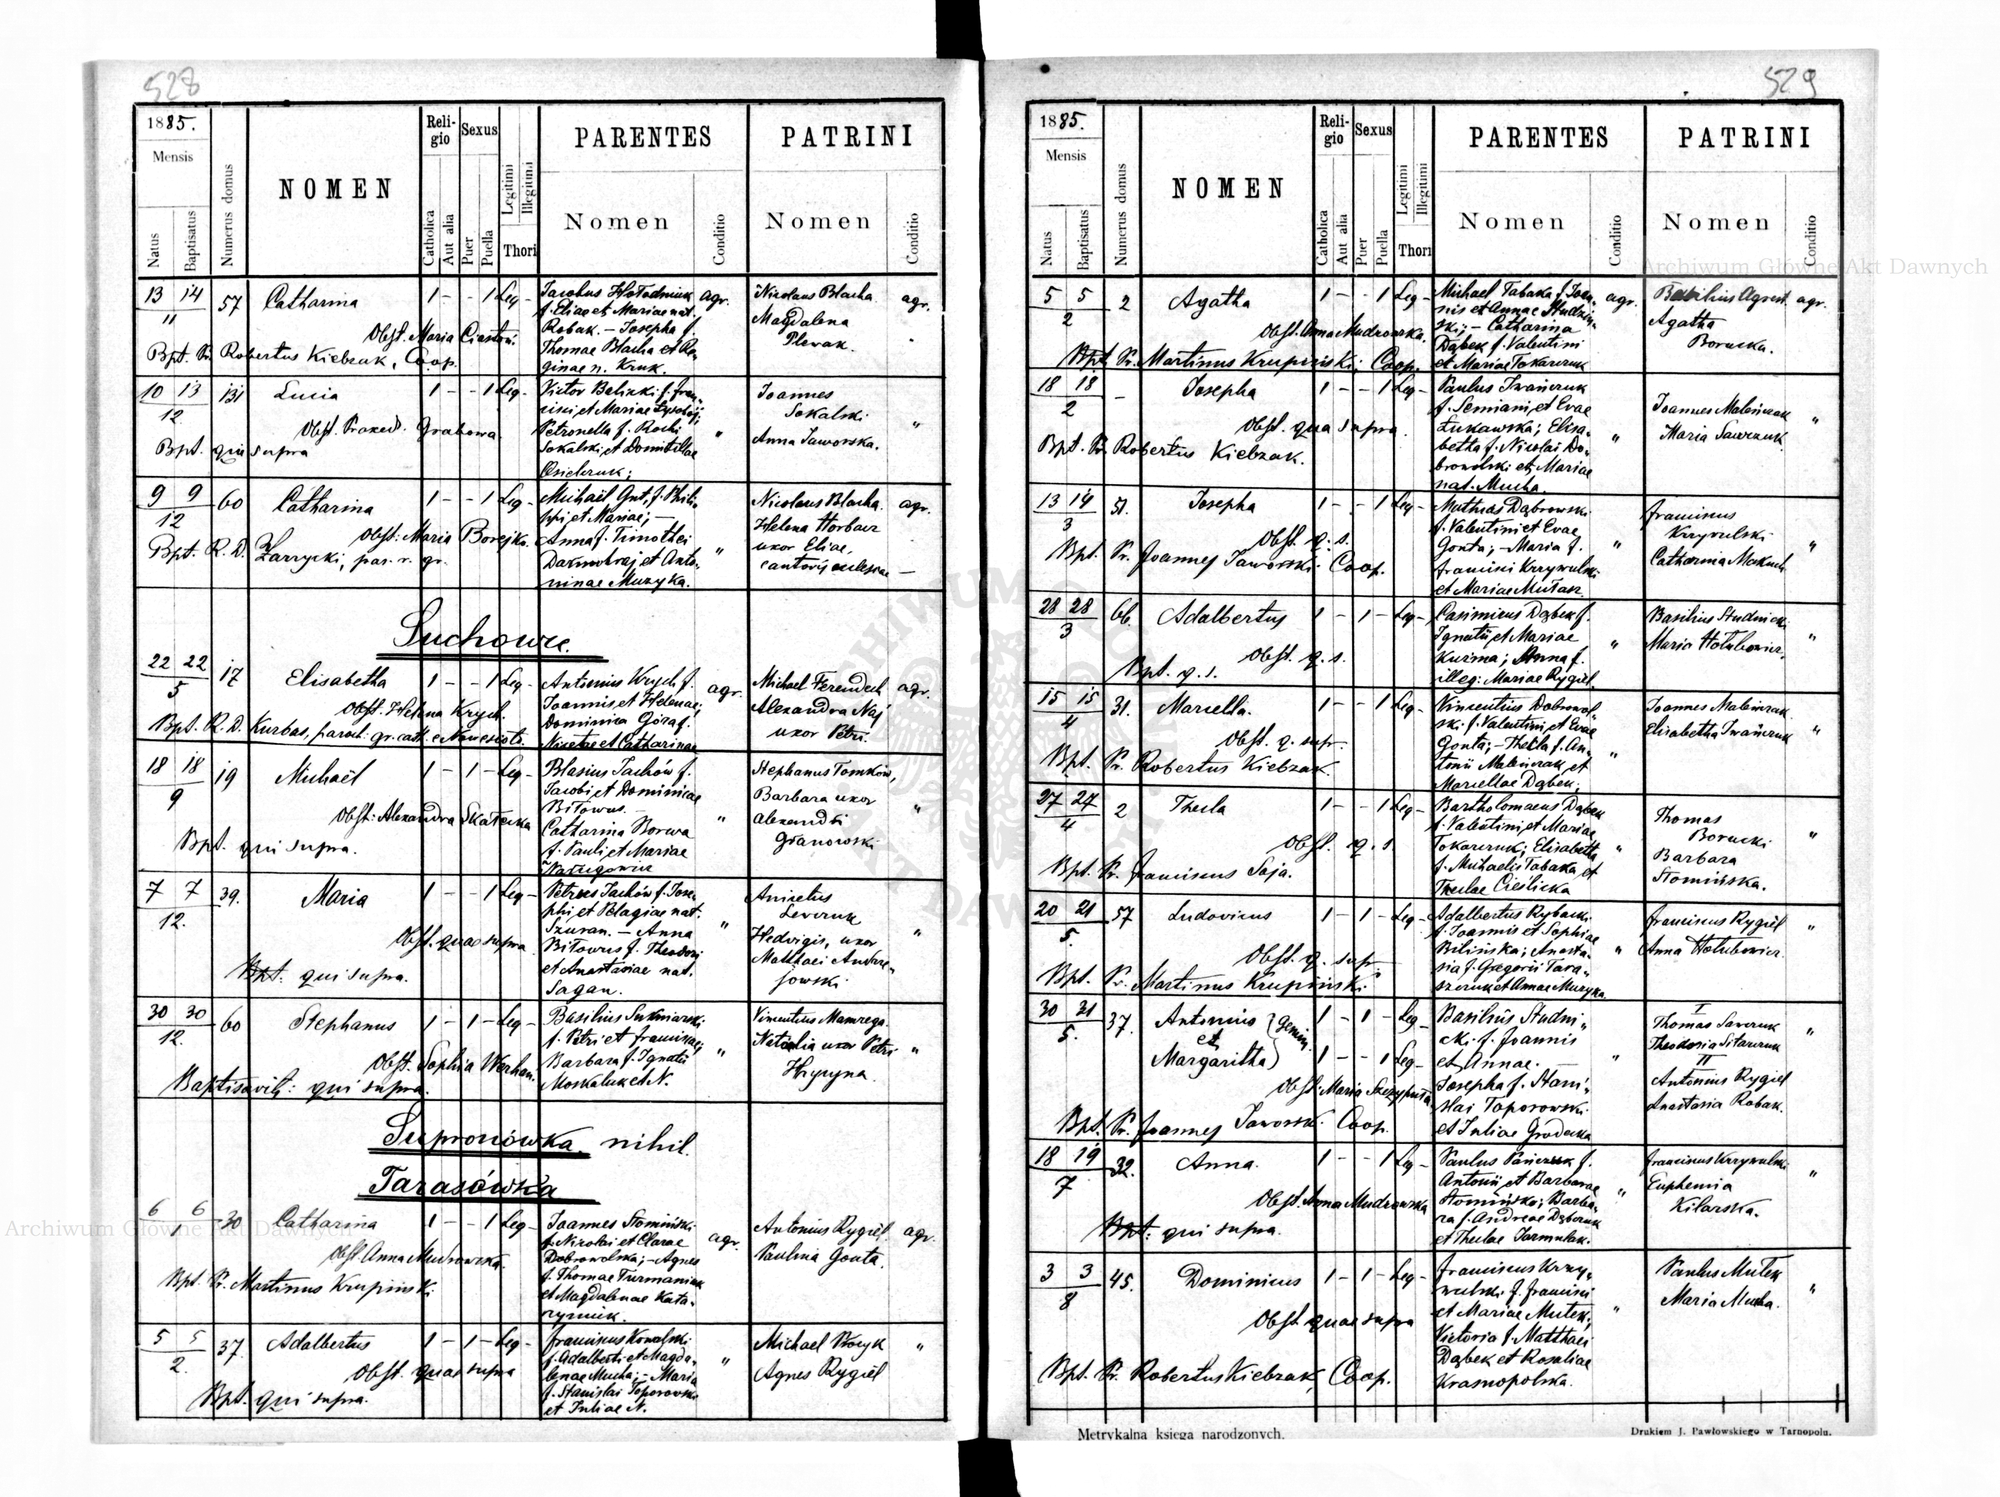 528
1885.
Mensis
Natus
Baptisatus
Numerus domus
NOMEN
Reli-
gio
Catholica
Aut alia
Sexus
Puer
Puella
Legitimi
Illegitimi
Thori
PARENTES
Nomen
Conditio
PATRINI
Nomen
Conditio
13 14
11
57
Catharina
1 - - 1 Leg -
Obst. Maria
Bpt. Pr. Robertus Kiebzak, Coop.
Jacobus Hołodniuk
f. Eliae et Mariae nat.
Robak. - Josepha f.
Thomae Blacha et Re-
ginae n. Kruk.
agr.
Nicolaus Blacha
Magdalena
Plewak.
agr.
10 13
12
131
Lucia
1 - - 1 Leg -
Obst. Praxed. Grabowa.
Bpt. qui supra
Victor Belicki f. Fran-
cisci et Mariae
Petronella f. Rochi
Sokalski, et Domitillae
"
Joannes
Sokalski
Anna Jaworska.
"
9 9
12
60
Catharina
1 - - 1 Leg -
Obst: Maria Borejko.
Bpt. R. D. Zarzycki, par. r. gr.
Michaël Gut, f. Phili-
ppi et Mariae; -
Anna f. Timothei
et Anto-
ninae Muzyka.
"
Nicolaus Blacha.
Helena Horbacz
uxor Eliae,
cantoris ecclesiae -
agr.
Suchowce.
22 22
5
17
Elisabetha
1 - - 1 Leg -
Obst. Helena Krych.
Bpt. R. D. Kurbas, paroch. gr. cath. e
Antonius Krych f.
Joannis et Helenae;
Dominica Góra f.
Nicetae et Catharinae
agr.
Michael Ferendech
Alexandra Naj
uxor Petri.
agr.
18 18
9
19
Michaël
1 - 1 - Leg -
Obst: Alexandra
Bpt. qui supra.
Blasius Jachów f.
Jacobi et Dominicae
Bitowus. -
Catharina Borwa
f. Pauli et Mariae
"
Stephanus Tomków,
Barbara uxor
Alexandri
Granowski
"
7 7
12.
39.
Maria
1 - - 1 Leg -
Obst. quae supra
Bpt. qui supra.
Petrus Jachów f. Jose-
phi et Pelagiae nat.
Szuran. - Anna
Bitowus f. Theodori
et Anastasiae nat.
Sagan.
"
Anicetus
Lewczuk
Hedvigis, uxor
Matthaei Andrze-
jowski
"
30 30
12.
60
Stephanus
1 - 1 - Leg -
Obst. Sophia Werhan.
Baptisavit: qui supra.
Basilius Sukniarski
f. Petri et Franciscae;
Barbara f. Ignatii
Moskaluk et N.
"
Vincentius Mamrega.
Natalia uxor Petri
Hryryna.
"
Supronówka. nihil.
Tarasówka
6 6
1
30
Catharina
1 - - 1 Leg -
Obst Anna Mudrowska.
Bpt. Pr. Martinus Krupiński.
Joannes Słomiński
f. Nicolai et Clarae
Dobrowolska; - Agnes
f. Thomae Furmaniuk
et Magdalenae Kata-
ryniuk.
agr.
Antonius Rygiel
Paulina Gonta.
agr.
5 5
2.
37.
Adalbertus
1 - 1 - Leg -
Obst. quae supra
Bpt. qui supra.
Franciscus Kowalski
f. Adalberti et Magda-
lenae Mucha; - Maria
f. Stanislai Toporowski
et Juliae N.
"
Michael Wocyk
Agnes Rygiel
"
529
1885.
Mensis
Natus
Baptisatus
Numerus domus
NOMEN
Reli-
gio
Catholica
Aut alia
Sexus
Puer
Puella
Legitimi
Illegitimi
Thori
PARENTES
Nomen
Conditio
PATRINI
Nomen
Conditio
5 5
2
2
Agatha
1 - - 1 Leg -
Obst. Anna Mudrowska.
Bpt. Pr. Martinus Krupiński, Coop.
Michael Tabaka f. Joan-
nis et Annae Studzin-
ski; - Catharina
Dąbek f. Valentini
et Mariae Tokarczuk
agr.
Basilius Agrest.
Agatha
Borucka.
agr.
18 18
2
-
Josepha
1 - - 1 Leg -
Obst. qua supra.
Bpt. Pr. Robertus Kiebzak.
Paulus Iwańczuk
f. Semiani, et Evae
Łukawska; Elisa-
betha f. Nicolai Do-
browolski et Mariae
nat. Mucha.
"
Joannes Maleńczak
Maria Sawczuk.
"
13 14
3
51.
Josepha
1 - - 1 Leg -
Obst. q. s.
Bpt. Pr. Joannes Jaworski Coop.
Mathias Dąbrowski
f. Valentini et Evae
Gonta; - Maria f.
Francisci Krzywulski
et Mariae Mutasz.
"
Franciscus
Krzywulski
Catharina
"
28 28
3
66.
Adalbertus
1 - 1 - Leg -
Obst. q. s.
Bpt. q. s.
Casimirus Dąbek f.
Ignatii et Mariae
Kuźma; Anna f.
illeg: Mariae Rygiel.
"
Basilius Studnicki
Maria Hołubowicz.
"
15 15
4
31.
Marcella.
1 - - 1 Leg -
Obst. q. supr.
Bpt. Pr. Robertus Kiebzak.
Vincentius Dobrowol-
ski f. Valentini et Evae
Gonta; - Thecla f. An-
tonii Maleńczak et
Marcellae Dąbek.
"
Joannes Maleńczak.
Elisabetha Iwańczuk
"
27 27
4
2
Thecla
1 - - 1 Leg -
Obst. q. s.
Bpt. Pr. Franciscus Saja.
Bartholomaeus Dąbek
f. Valentini et Mariae
Tokarczuk; Elisabetha
f. Michaelis Tabaka et
Theclae Cieślicka
"
Thomas
Borucki
Barbara
Słomińska.
"
20 21
5.
57
Ludovicus
1 - 1 - Leg -
Obst. q. supr
Bpt. Pr. Martinus Krupiński
Adalbertus Rybacki
f. Joannis et Sophiae
Bilińska; Anasta-
sia f. Gregorii Tara-
szczuk et Annae Muzyka.
"
Franciscus Rygiel
Anna Hołubowicz
"
30 31
5.
37.
Antonius
et
Margaritha
gemin.
1 - 1 - Leg -
1 - - 1 Leg -
Obst: Maria
Bpt. Pr. Joannes Jaworski Coop.
Basilius Studni-
cki f. Joannis
et Annae.
Josepha f. Stani-
slai Toporowski
et Juliae Grodecka
"
I
Thomas Sawczuk
Theodosia Sitarczuk
II
Antonius Rygiel
Anastasia Robak.
"
18 19
7
32.
Anna.
1 - - 1 Leg -
Obst. Anna Mudrowska
Bpt. qui supra.
Paulus f.
Antonii et Barbarae
Słomińska; Barba-
ra f. Andreae
et Theclae Jarmułak.
"
Franciscus Krzywulski
Euphemia
Kilarska.
"
3 3
8
45.
Dominicus
1 - 1 - Leg -
Obst quae supra
Bpt. Pr. Robertus Kiebzak, Coop.
Franciscus Krzy-
wulski f. Francisci
et Mariae Mutek;
Victoria f. Matthaei
Dąbek et Rosaliae
Krasnopolska.
"
Paulus Mutek
Maria Mucha.
"
Metrykalna księga narodzonych.
Drukiem J. Pawłowskiego w Tarnopolu.
Archiwum Główne Akt Dawnych
Archiwum Główne Akt Dawnych